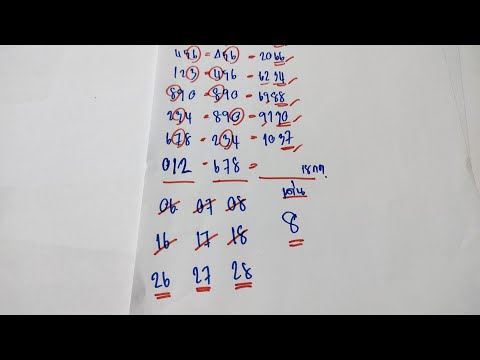 456 = 456 = 2066
123 = 456 = 6234
890 = 890 = 6988
234 = 890 = 9190
678 = 234 = 1037
012 - 678 =
06 07 08
8
16 17 18
26 27 28